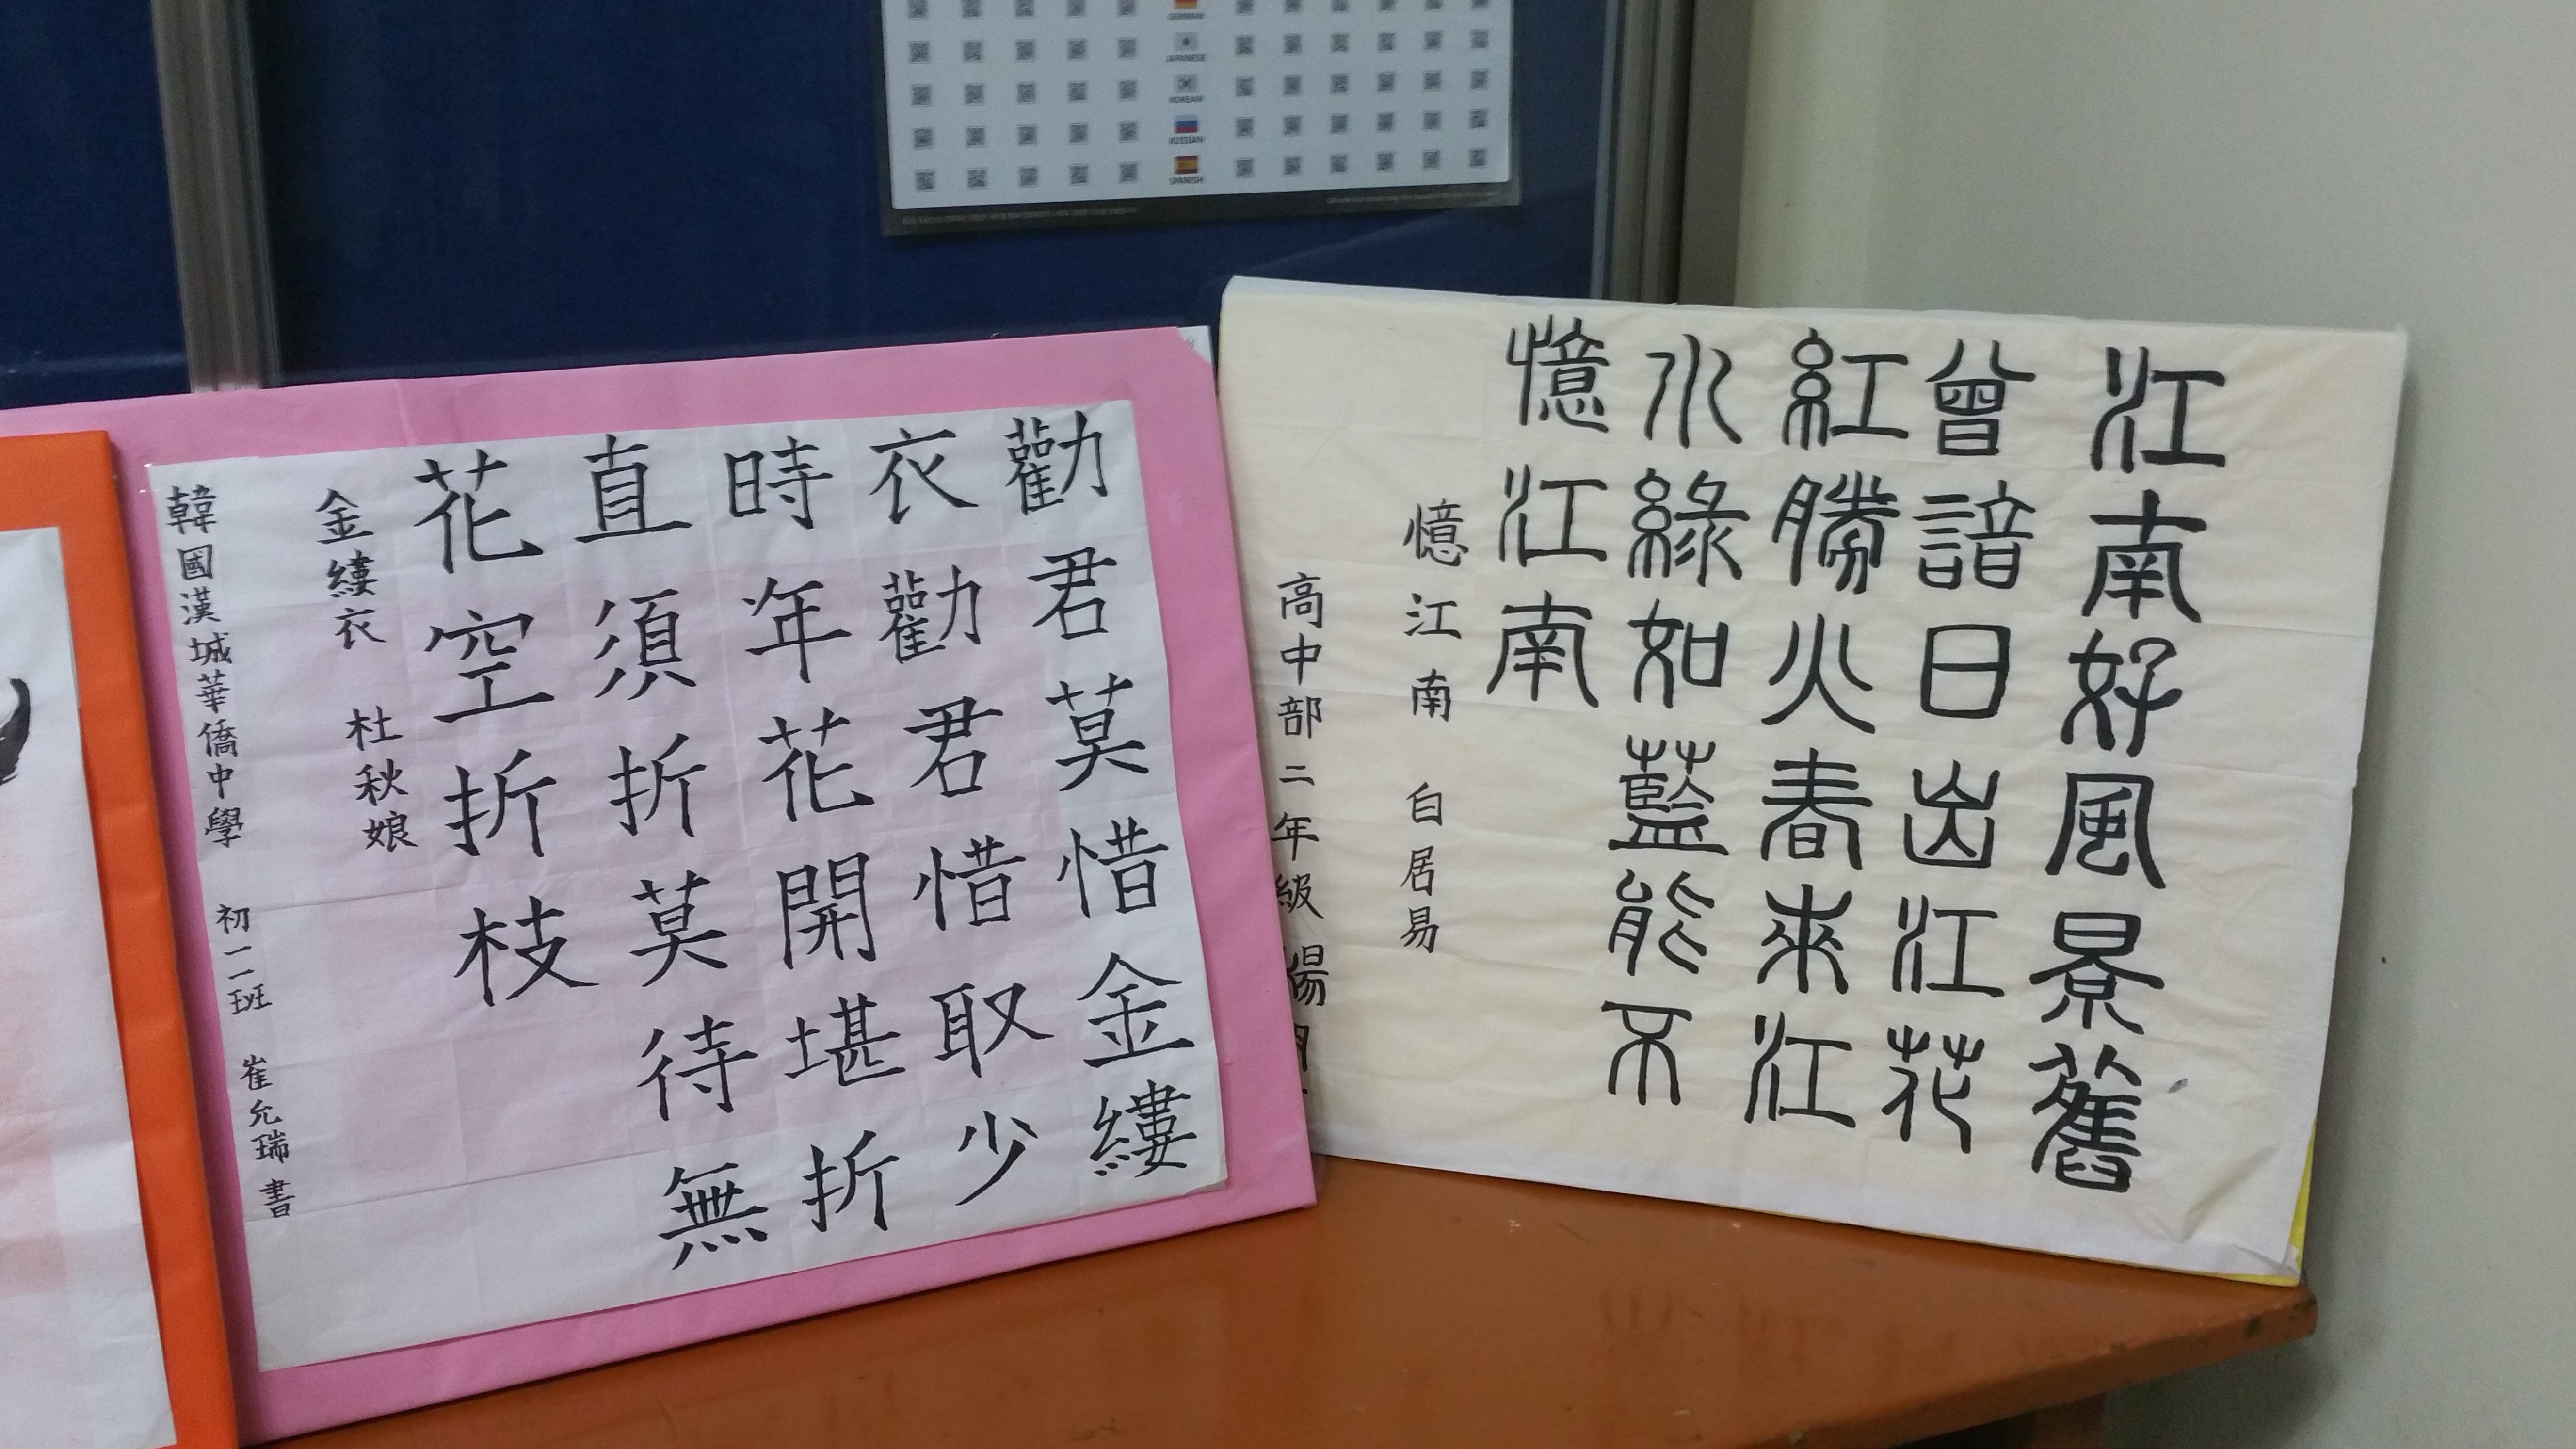 GERMAN
JAPANESE
KOREAN
RUSSIAN
SPANISH
江南好風景舊
曾諳日出江花
紅勝火春來江
水綠如藍能不
憶江南
憶江南 白居易
高中部二年級 楊
勸君莫惜金縷
衣勸君惜取少
時年花開堪折
直須折莫待無
花空折枝
金縷衣 杜秋娘
韓國漢城華僑中學 初一二班 崔允瑞 書